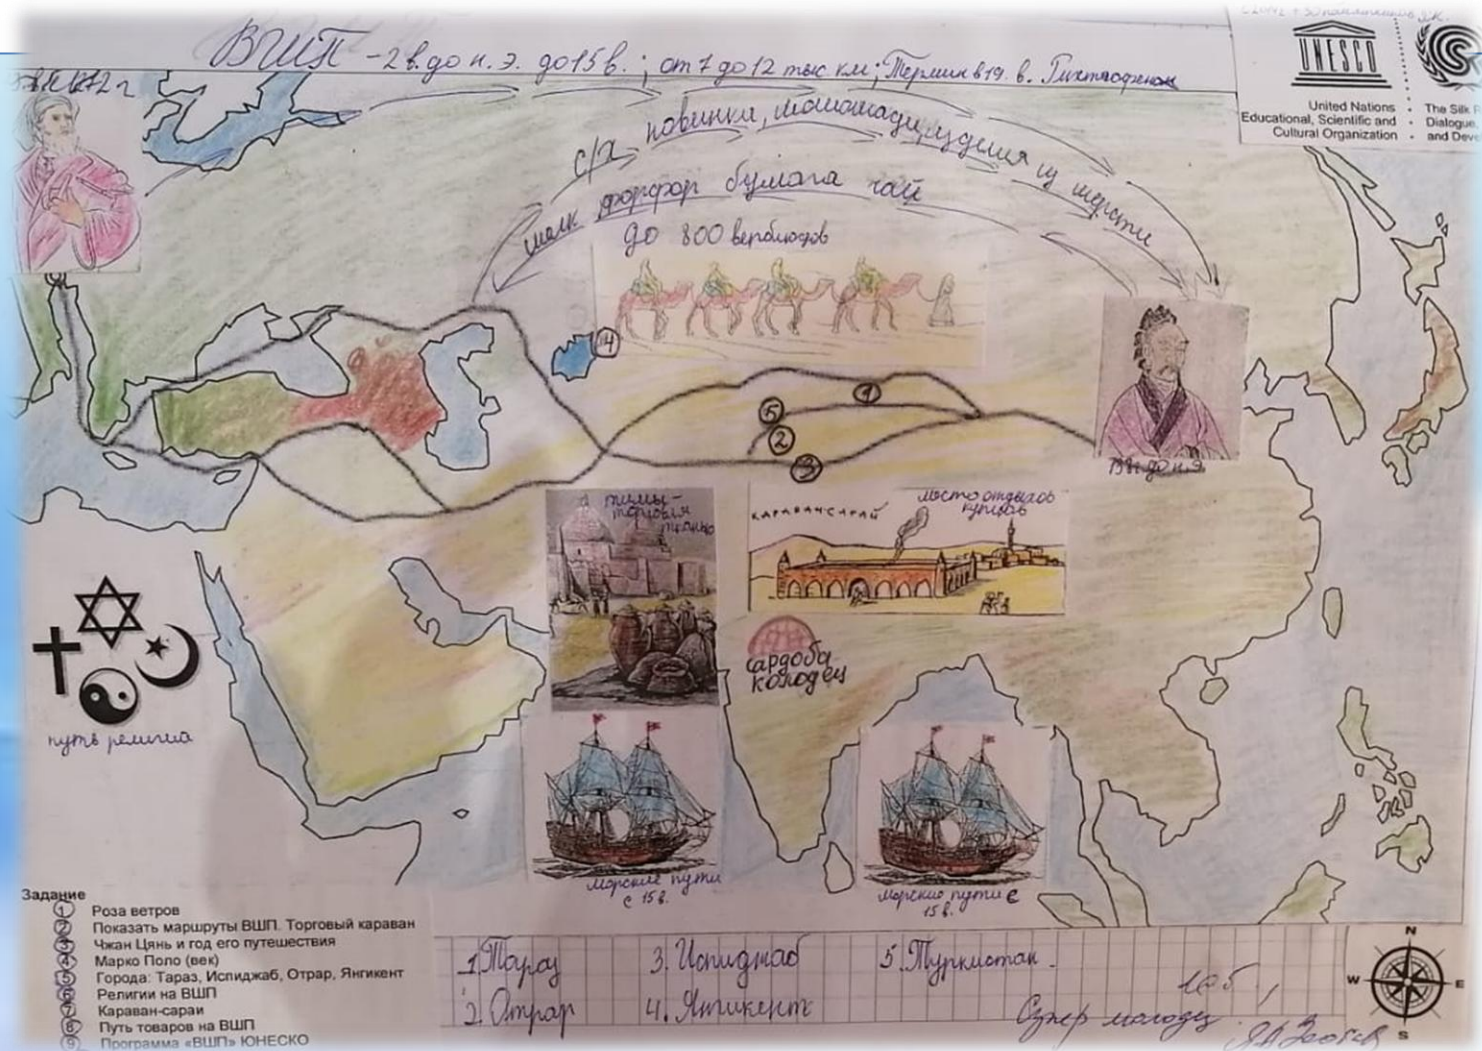 ВШП - 2 в. до н. э. до 15 в. ; от 7 до 12 тыс км; Термин в 19. в. Рихтгофеном
UNESCO
United Nations
Educational, Scientific and
Cultural Organization
The Silk
Dialogue,
and Deve
с/х новинки, лошади, изделия из шерсти
шелк фарфор бумага чай
до 800 верблюдов
4
1
5
2
3
138г. до н.э.
тимы-
торговля
тканью
КАРАВАН-САРАЙ
место отдыхов
купцов
сардоба
колодец
путь религиа
морские пути
с 15 в.
морские пути с
15 в.
Задание
1 Роза ветров
2 Показать маршруты ВШП. Торговый караван
3 Чжан Цянь и год его путешествия
4 Марко Поло (век)
5 Города: Тараз, Испиджаб, Отрар, Янгикент
6 Религии на ВШП
7 Караван-сараи
8 Путь товаров на ВШП
9 Программа «ВШП» ЮНЕСКО
1 Тараз 3. Испиджаб 5. Туркистан.
2. Отрар 4. Янгикент
10б,
Супер молодец
N
W E
S